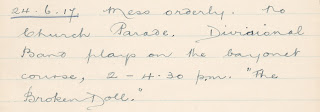 24.6.17. Mess orderly. No
Church Parade. Divisional
Band plays on the bayonet
course, 2 - 4.30 p.m. "The
Broken Doll."